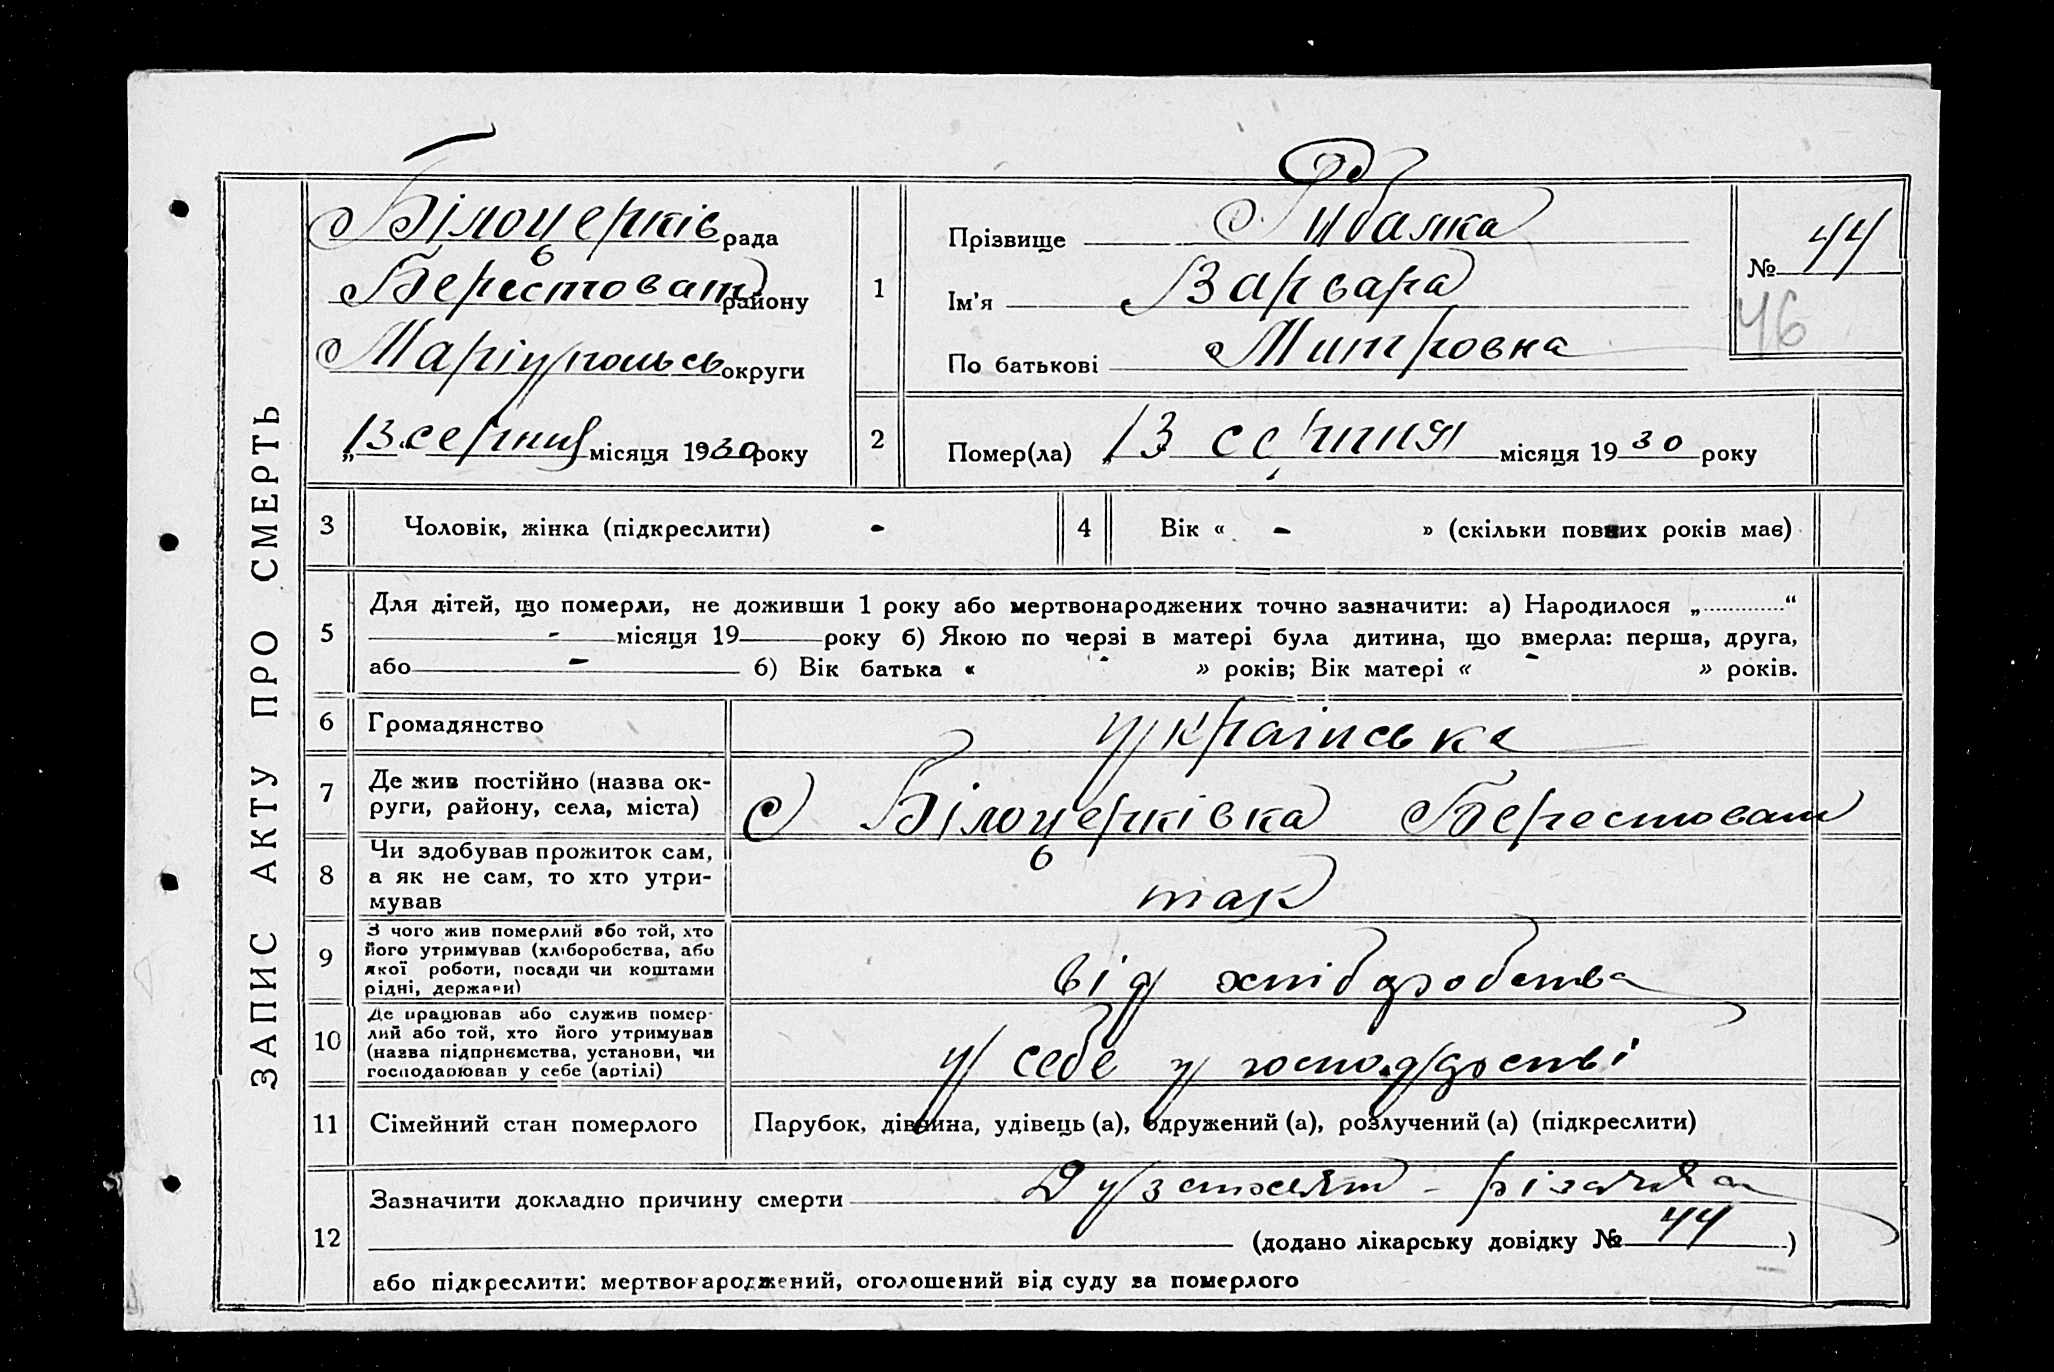 ЗАПИС АКТУ ПРО СМЕРТЬ
Білоцерків рада
Берестоват району
Маріупольсь округи
„13 серпня місяця 1930 року
1
Прізвище Рибалка
Ім'я Варвара
По батькові Митровна
№ 44
46
2
Помер(ла) „13 серпня місяця 1930 року
3 Чоловік, жінка (підкреслити) -
4 Вік « - » (скільки повних років має)
5
Для дітей, що померли, не доживши 1 року або мертвонароджених точно зазначити: а) Народилося „............“
- місяця 19 року б) Якою по черзі в матері була дитина, що вмерла: перша, друга,
або - б) Вік батька « - » років; Вік матері « - » років.
6 Громадянство українське
7 Де жив постійно (назва ок-
руги, району, села, міста)
с Білоцерківка Берестоват
8 Чи здобував прожиток сам,
а як не сам, то хто утри-
мував
так
9 З чого жив померлий або той, хто
його утримував (хліборобства, або
якої роботи, посади чи коштами
рідні, держави)
від хліборобства
10 Де працював або служив помер-
лий або той, хто його утримував
(назва підприємства, установи, чи
господарював у себе (артілі)
у себе у господарстві
11 Сімейний стан померлого
Парубок, дівчина, удівець (а), одружений (а), розлучений (а) (підкреслити)
12
Зазначити докладно причину смерти - різачка
(додано лікарську довідку № 44)
або підкреслити: мертвонароджений, оголошений від суду за померлого